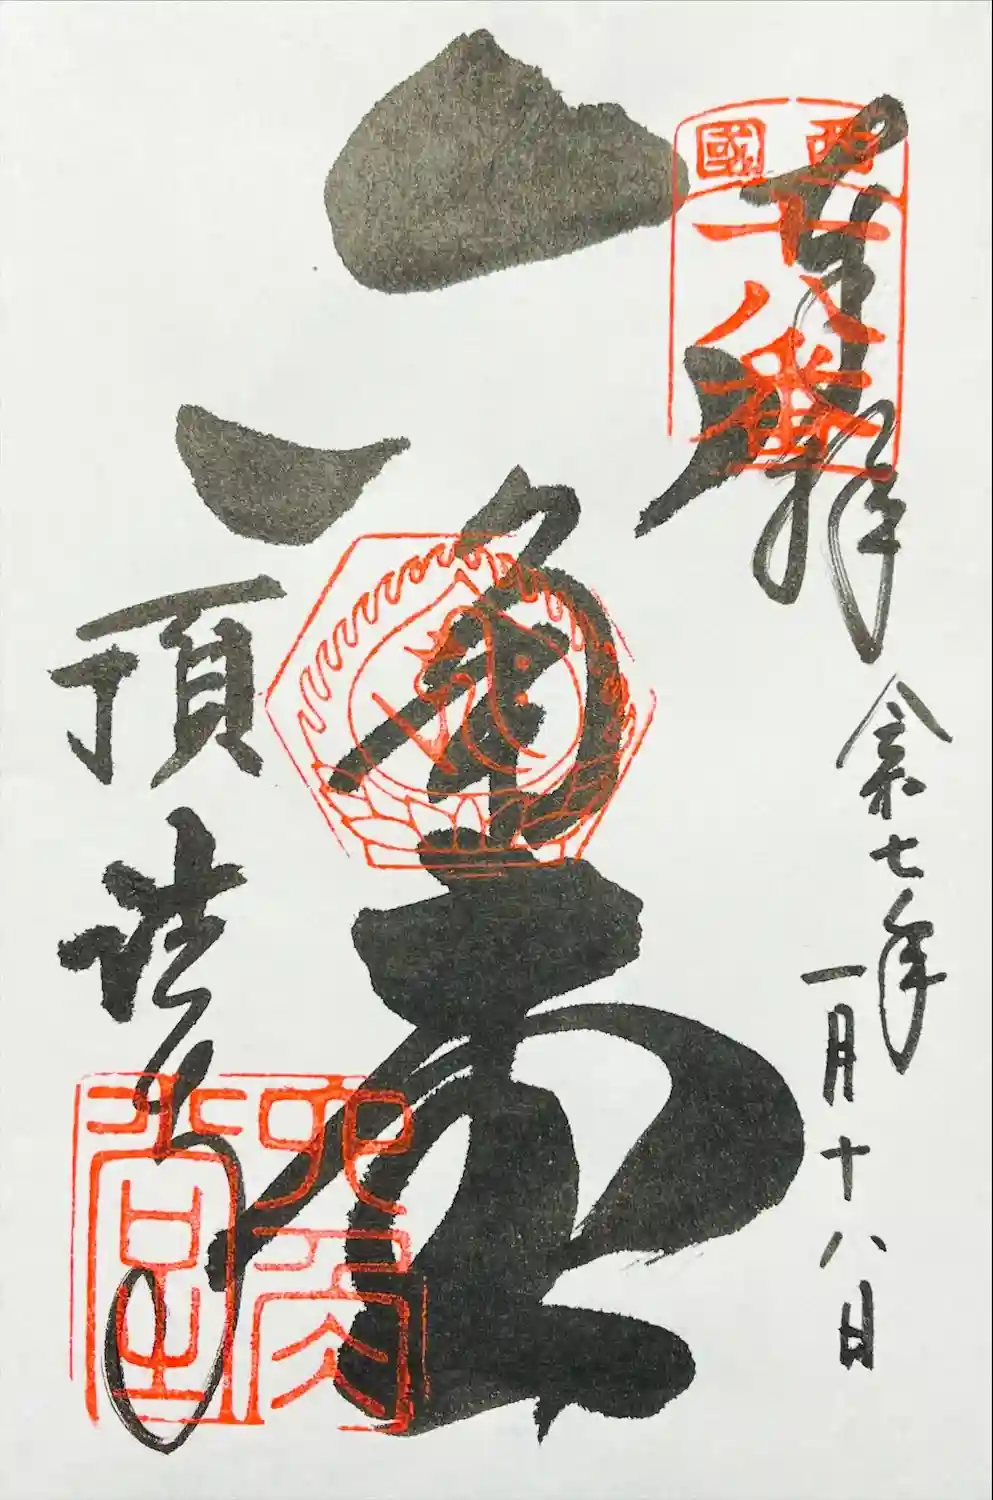 奉拝
西國
十八番
令和七年
一月十八日
六角堂
六角堂
頂法寺